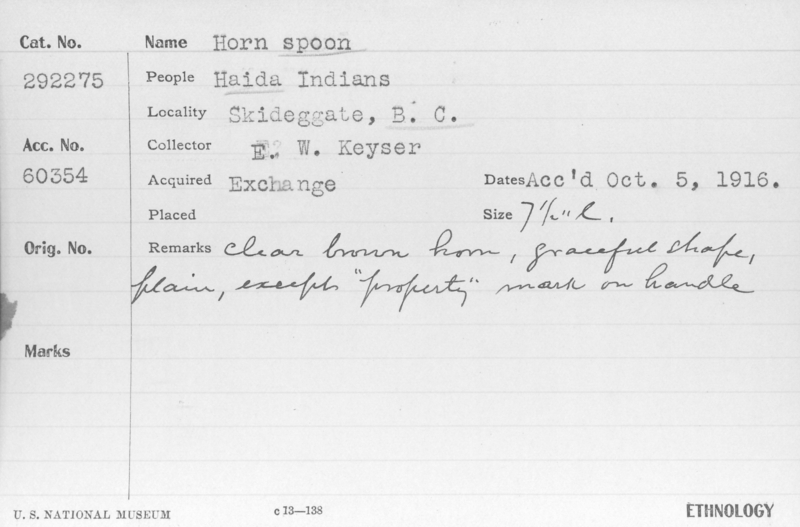 Cat. No. Name Horn spoon
292275 People Haida Indians
Locality Skideggate, B. C.
Acc. No. Collector E. W. Keyser
60354 Acquired Exchange Dates Acc'd Oct. 5, 1916.
Placed Size 7 1/2" l.
Orig. No. Remarks clear brown horn, graceful shape,
plain, except "property" mark on handle
Marks
U. S. NATIONAL MUSEUM c 13—138 ETHNOLOGY